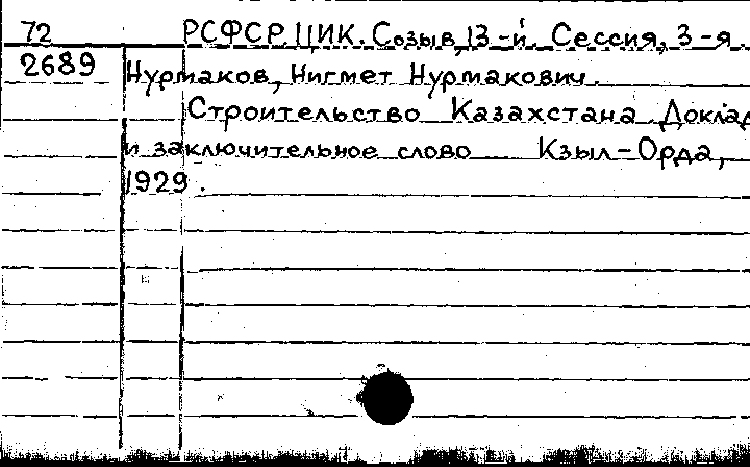 72 РСФСР. ЦИК. Созыв, 13-й. Сессия, 3-я.
2689 Нурмаков, Нигмет Нурмакович.
Строительство Казахстана Доклад
и заключительное слово Кзыл-Орда,
1929.